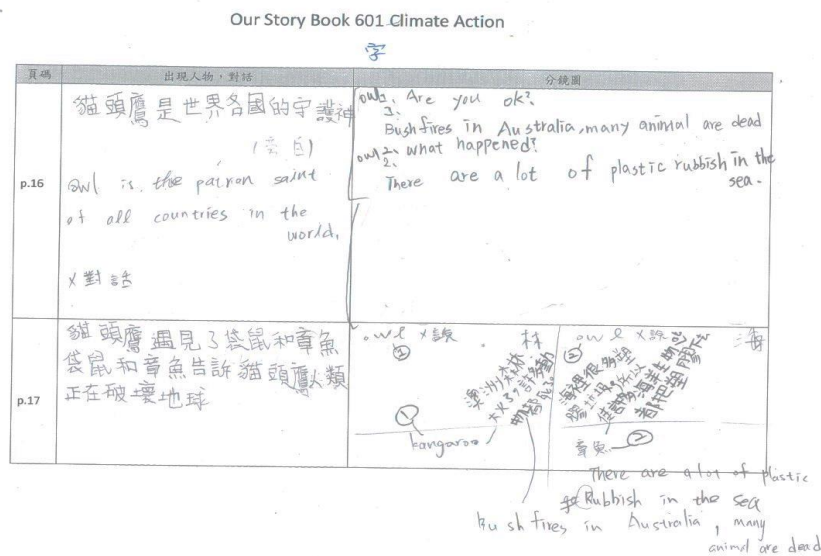 Our Story Book 601 Climate Action
字
頁碼
出現人物,對話
分鏡圖
p.16
貓頭鷹是世界各國的守護神
(旁白)
owl is the patron saint
of all countries in the
world,
X對話
owl 1. Are you ok?
Bushfires in Australia, many animal are dead
owl 2. what happened?
2. There are a lot of plastic rubbish in the
sea.
p.17
貓頭鷹遇見了袋鼠和章魚
袋鼠和章魚告訴貓頭鷹人類
正在破壞地球
owl
林
①
澳洲森林
大火了許多動
①
kangaroo
owl
海
②
章魚
②
There are a lot of plastic
Rubbish in the sea
Bushfires in Australia, many
animal are dead